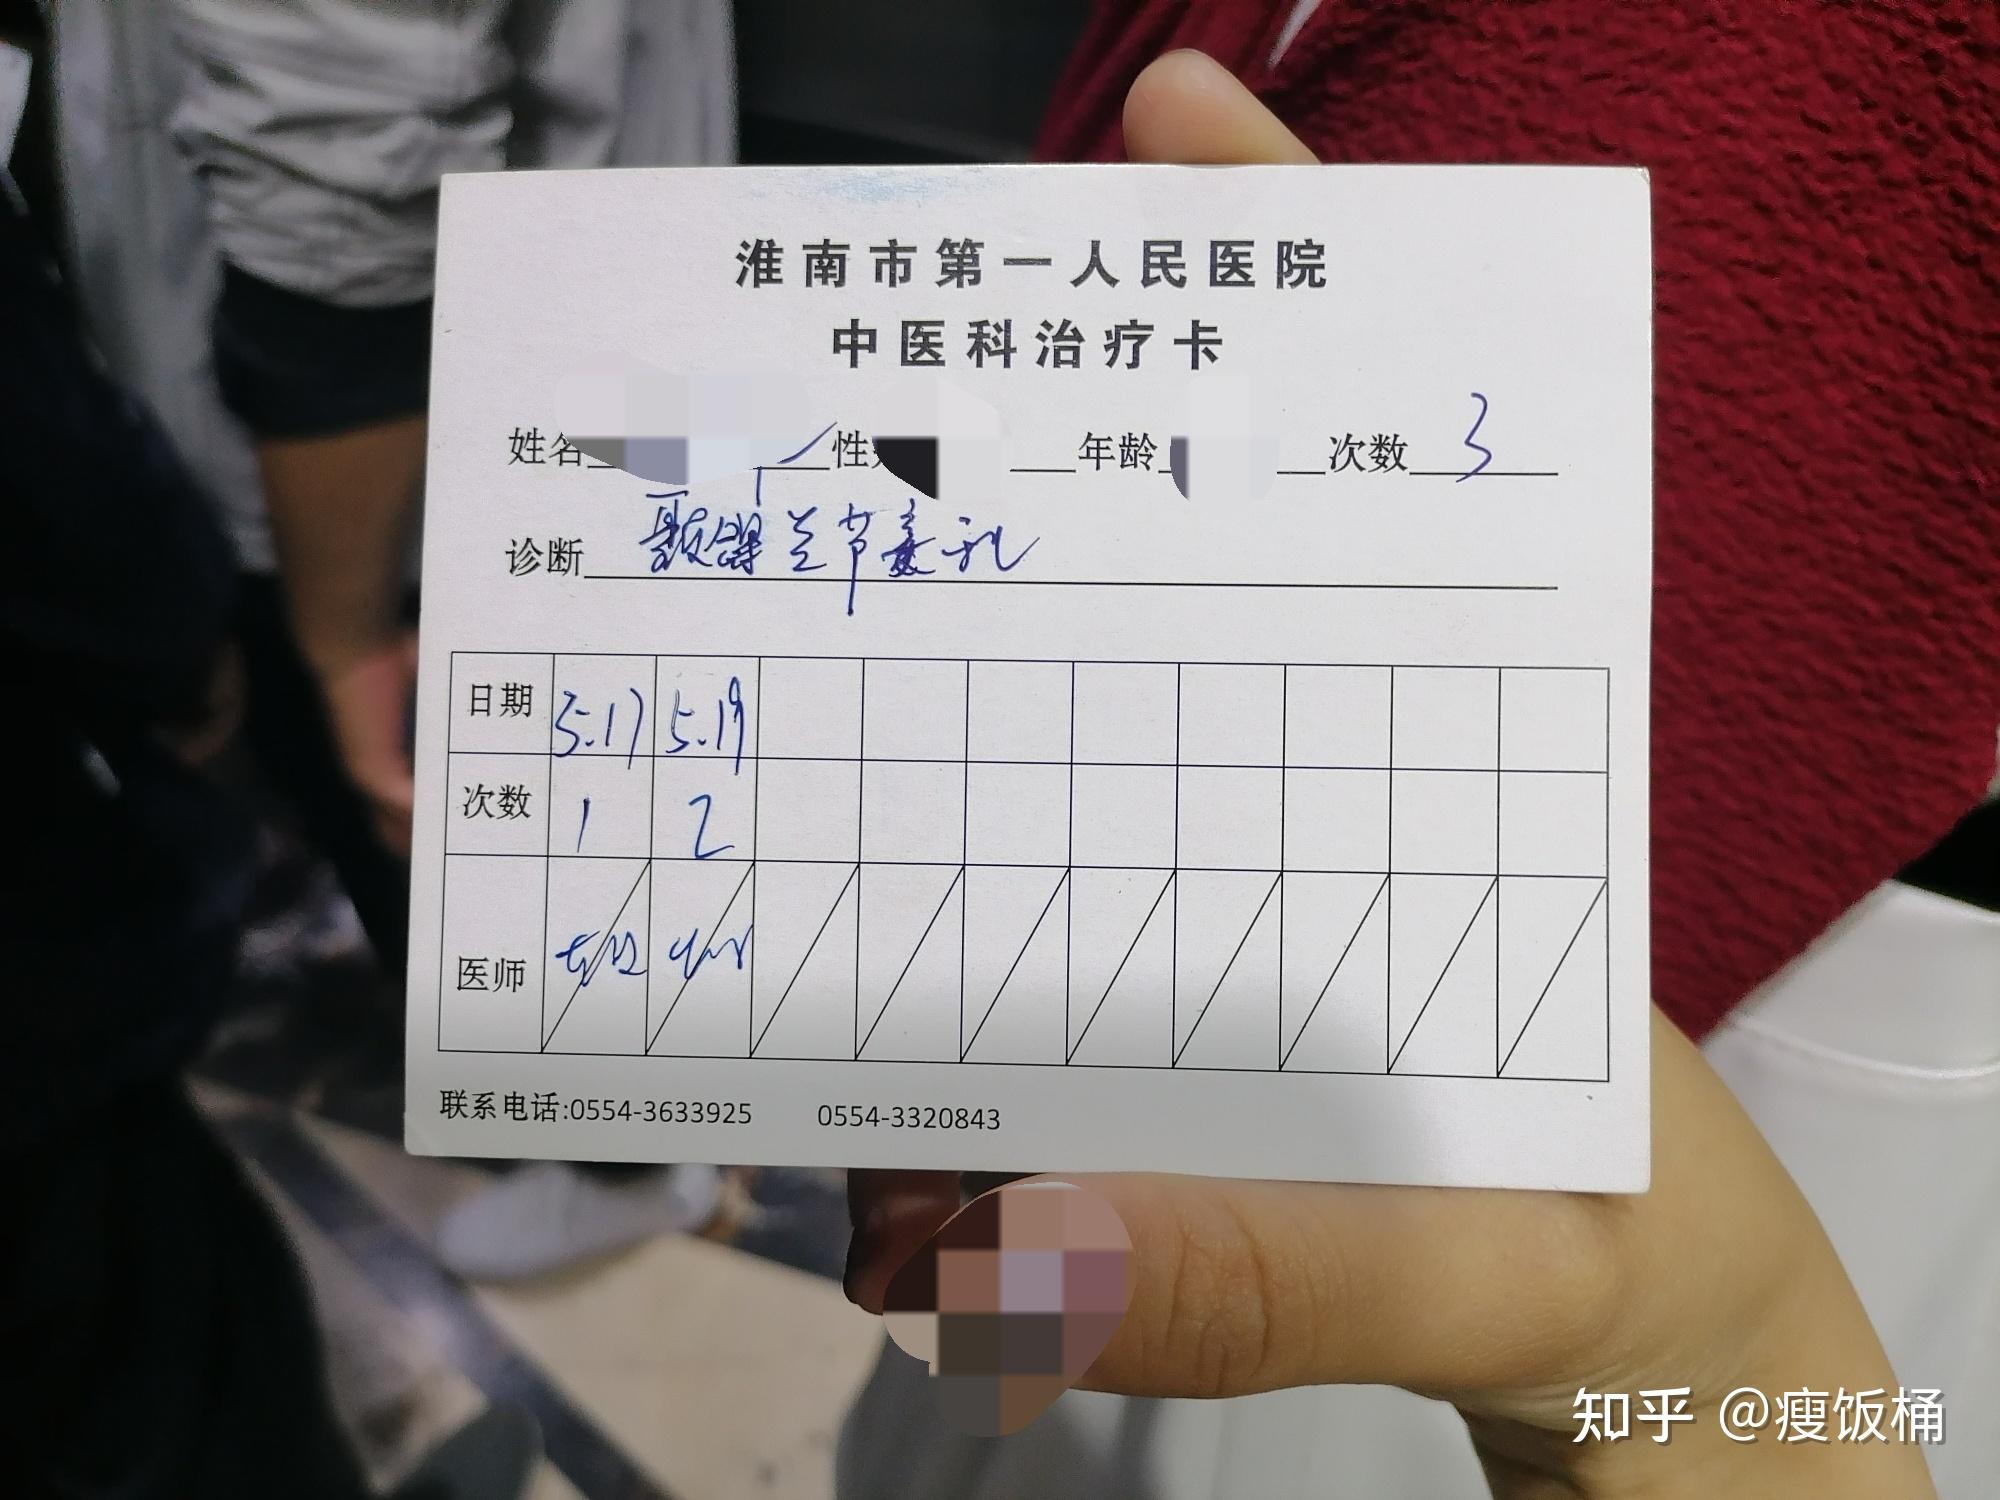 淮南市第一人民医院
中医科治疗卡
姓名 性 年龄 次数 3
诊断 颞颌关节紊乱
日期 5.17 5.19
次数 1 2
医师
联系电话:0554-3633925 0554-3320843
知乎 @瘦饭桶